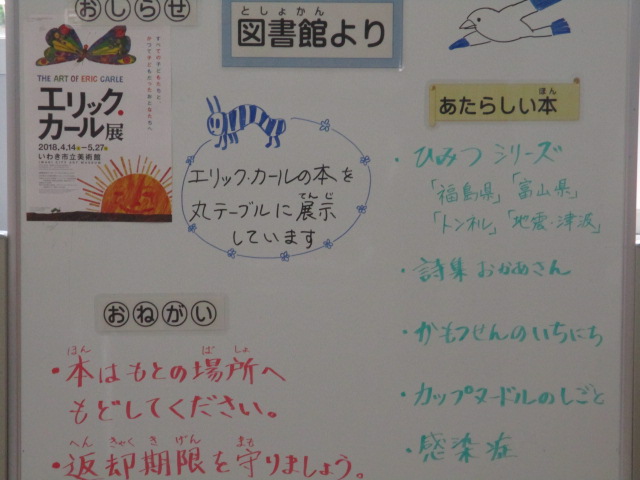 おしらせ
図書館より
としょかん
THE ART OF ERIC CARLE
エリック・
カール展
2018.4.14 5.27
いわき市立美術館
すべての子どもたちと、
かつて子どもだったおとなたちへ
エリック・カールの本を
丸テーブルに展示
てんじ
しています
あたらしい本
ほん
・ひみつシリーズ
「福島県」「富山県」
「トンネル」「地震・津波」
・詩集 おかあさん
・かもつせんのいちにち
・カップヌードルのしごと
・感染症
おねがい
ほん ば しょ
・本はもとの場所へ
もどしてください。
へん きゃく き げん まも
・返却期限を守りましょう。